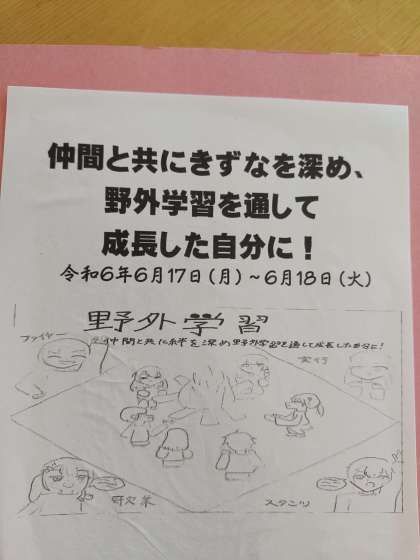 仲間と共にきずなを深め、
野外学習を通して
成長した自分に！
令和6年6月17日(月)～6月18日(火)
野外学習
仲間と共に絆を深め野外学習を通して成長した自分に!
ファイヤー
実行
研究菜
スタンツ